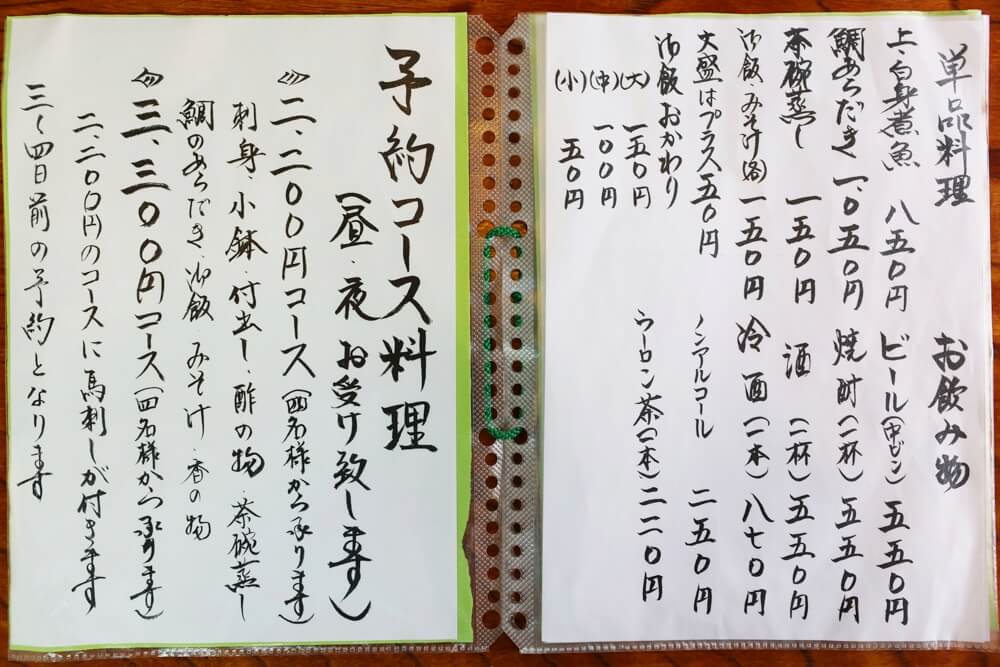 単品料理
上・白身煮魚 八五〇円
鯛あらだき 一、〇五〇円
茶碗蒸し 一五〇円
御飯・みそ汁(各) 一五〇円
大盛はプラス五〇円
御飯おかわり
(大) 一五〇円
(中) 一〇〇円
(小) 五〇円
お飲み物
ビール(中ビン) 五五〇円
焼酎(一杯) 五五〇円
酒(一杯) 五五〇円
冷酒(一本) 八七〇円
ノンアルコール 二五〇円
ウーロン茶(一本) 二二〇円
予約コース料理
(昼・夜 お受け致します)
二、二〇〇円コース(四名様から承ります)
刺身・小鉢・付出し・酢の物 茶碗蒸し
鯛のあらだき・御飯・みそ汁・香の物
三、三〇〇円コース(四名様から承ります)
二、二〇〇円のコースに馬刺しが付きます
三〜四日前の予約となります